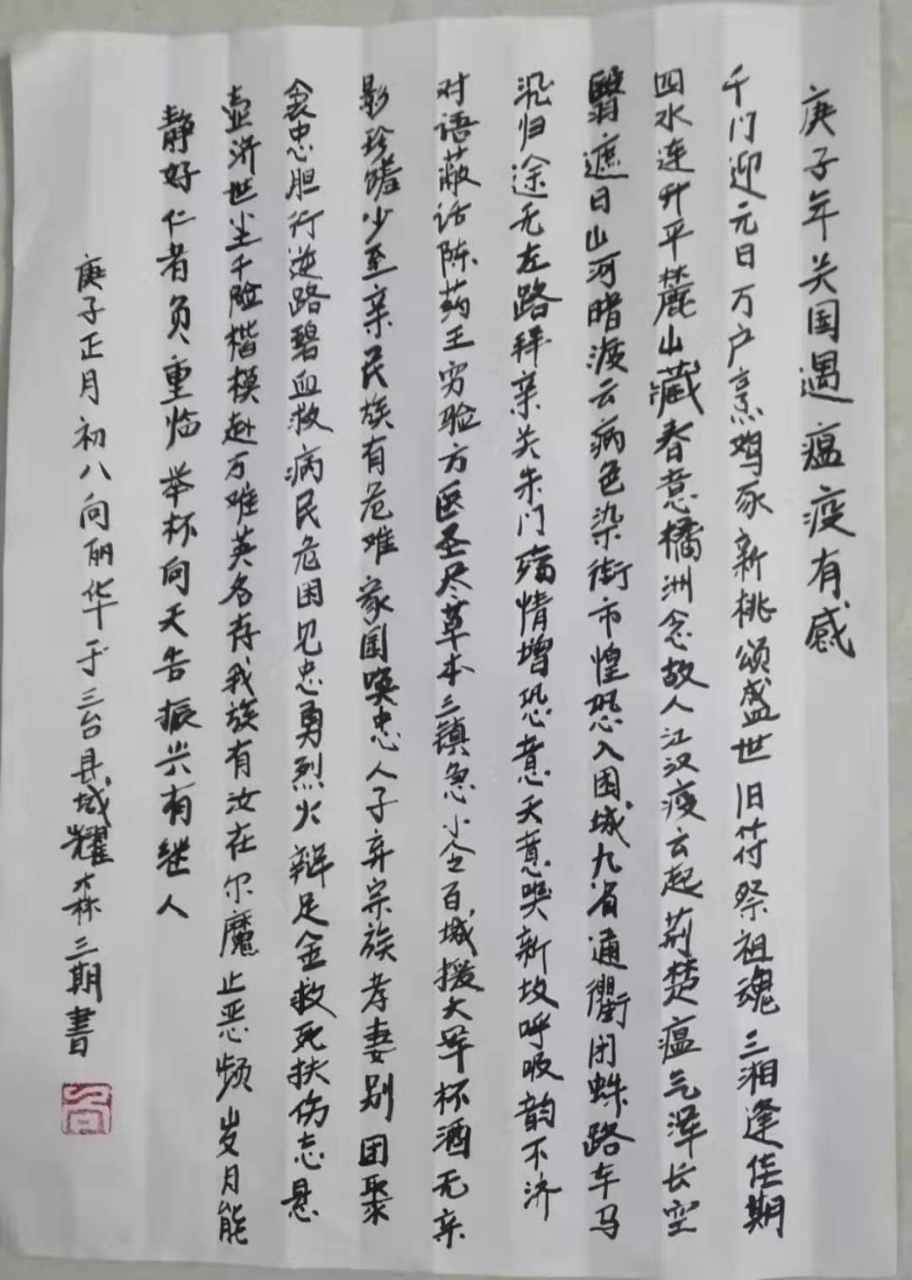 庚子年关国遇瘟疫有感
千门迎元日万户烹鸡豕新桃颂盛世旧符祭祖魂三湘逢佳期
四水连升平麓山藏春意橘洲念故人江汉疫云起荆楚瘟气浑长空
翳遮日山河暗渡云病色染街市惶恐入围城九省通衢闭蛛路车马
沉归途无左路拜亲关朱门殇情增恐意天意哭新坟呼吸韵不济
对语蔽话陈药王穷验方医圣尽草本三镇急小令百城援大举杯酒无亲
影珍馐少至亲民族有危难家国唤忠人子弃宗族孝妻别团聚
衾忠胆行逆路碧血救病民危困见忠勇烈火辩足金救死扶伤志悬
壶济世尘千险楷模赴万难英名存我族有汝在尔魔止恶频岁月能
静好仁者负重临举杯向天告振兴有继人
庚子正月初八向丽华于三台县城耀森三期書